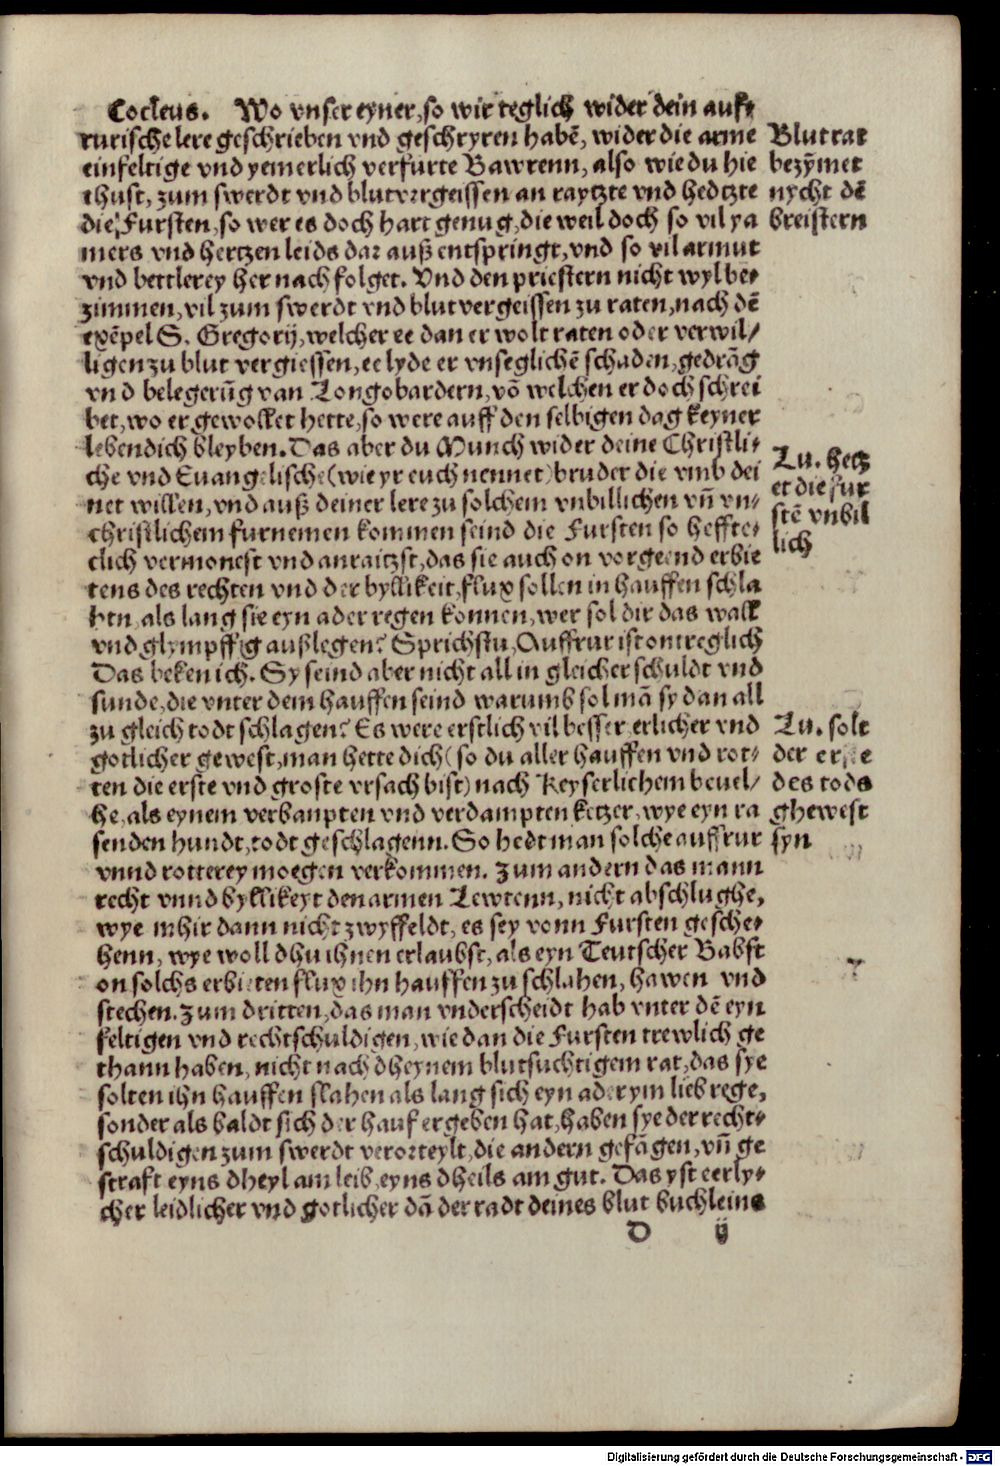 Cocleus. Wo vnser eyner, so wir teglich wider dein auff⸗
rurische lere geschrieben vnd geschryren habē, wider die arme
einfeltige vnd yemerlich verfurte Bawrenn, also wie du hie
thust, zum swerdt vnd blutvergeissen an raytzte vnd hedtzte
die Fursten, so wer es doch hart genug, die weil doch so vil ya
mers vnd hertzen leids dar auß entspringt, vnd so vil armut
vnd bettlerey her nach folget. Vnd den priestern nicht wyl be⸗
zimmen, vil zum swerdt vnd blutvergeissen zu raten, nach dē
exēpel S. Gregorij, welcher ee dan er wolt raten oder verwil/
ligen zu blut vergiessen, ee lyde er vnseglichē schaden, gedrāg
vnd belegerūg van Longobardern, vō welchen er doch schrei
bet, wo er gewollet hette, so were auff den selbigen dag keyner
lebendich bleyben. Das aber du Munch wider deine Christli⸗
che vnd Euangelische (wie yr euch nennet) bruder die vmb dei
net willen, vnd auß deiner lere zu solchem vnbillichen vn̄ vn⸗
christlichem furnemen kommen seind die Fursten so heffte⸗
clich vermonest vnd anraitzst, das sie auch on vorgeend erbie
tens des rechten vnd der byllikeit, flux sollen in hauffen schla
hen, als lang sie eyn ader regen konnen, wer sol dir das wall
vnd glympffig außlegen? Sprichstu, Auffrur ist ontreglich
Das beken ich. Sy seind aber nicht all in gleicher schuldt vnd
sunde, die vnter dem hauffen seind warumb sol mā sy dan all
zu gleich todt schlagen? Es were erstlich vil besser, erlicher vnd
gotlicher gewest, man hette dich (so du aller hauffen vnd rot⸗
ten die erste vnd groste vrsach bist) nach Keyserlichem beuel/
he, als eynem verbanpten vnd verdampten ketzer, wye eyn ra
senden hundt, todt geschlagenn. So hedt man solche auffrur
vnnd rotterey moegen verkommen. Zum andern das mann
recht vnnd byllikeyt den armen Lewtenn, nicht abschlughe,
wye mhir dann nicht zwyffeldt, es sey vonn Fursten gesche⸗
henn, wye woll dhu ihnen erlaubst, als eyn Teutscher Babst
on solchs erbieten flux ihn hauffen zu schlahen, hawen vnd
stechen. Zum dritten, das man vnderscheidt hab vnter dē eyn
feltigen vnd rechtschuldigen, wie dan die Fursten trewlich ge
thann haben, nicht nach dheynem blutsuchtigem rat, das sye
solten ihn hauffen slahen als lang sich eyn ader ym lieb rege,
sonder als baldt sich der hauf ergeben hat, haben sye der recht⸗
schuldigen zum swerdt verorteylt, die andern gefāgen, vn̄ ge
straft eyns dheyl am leib, eyns dheils am gut. Das yst eerly⸗
cher leidlicher vnd gotlicher dā der radt deines blut buchleins
D ij
Blut rat
bezȳmet
nycht dē
breistern
Lu. hetz
et die fur
stē vnbil
lich
Lu. solt
der erste
des tods
ghewest
syn
Digitalisierung gefördert durch die Deutsche Forschungsgemeinschaft - DFG